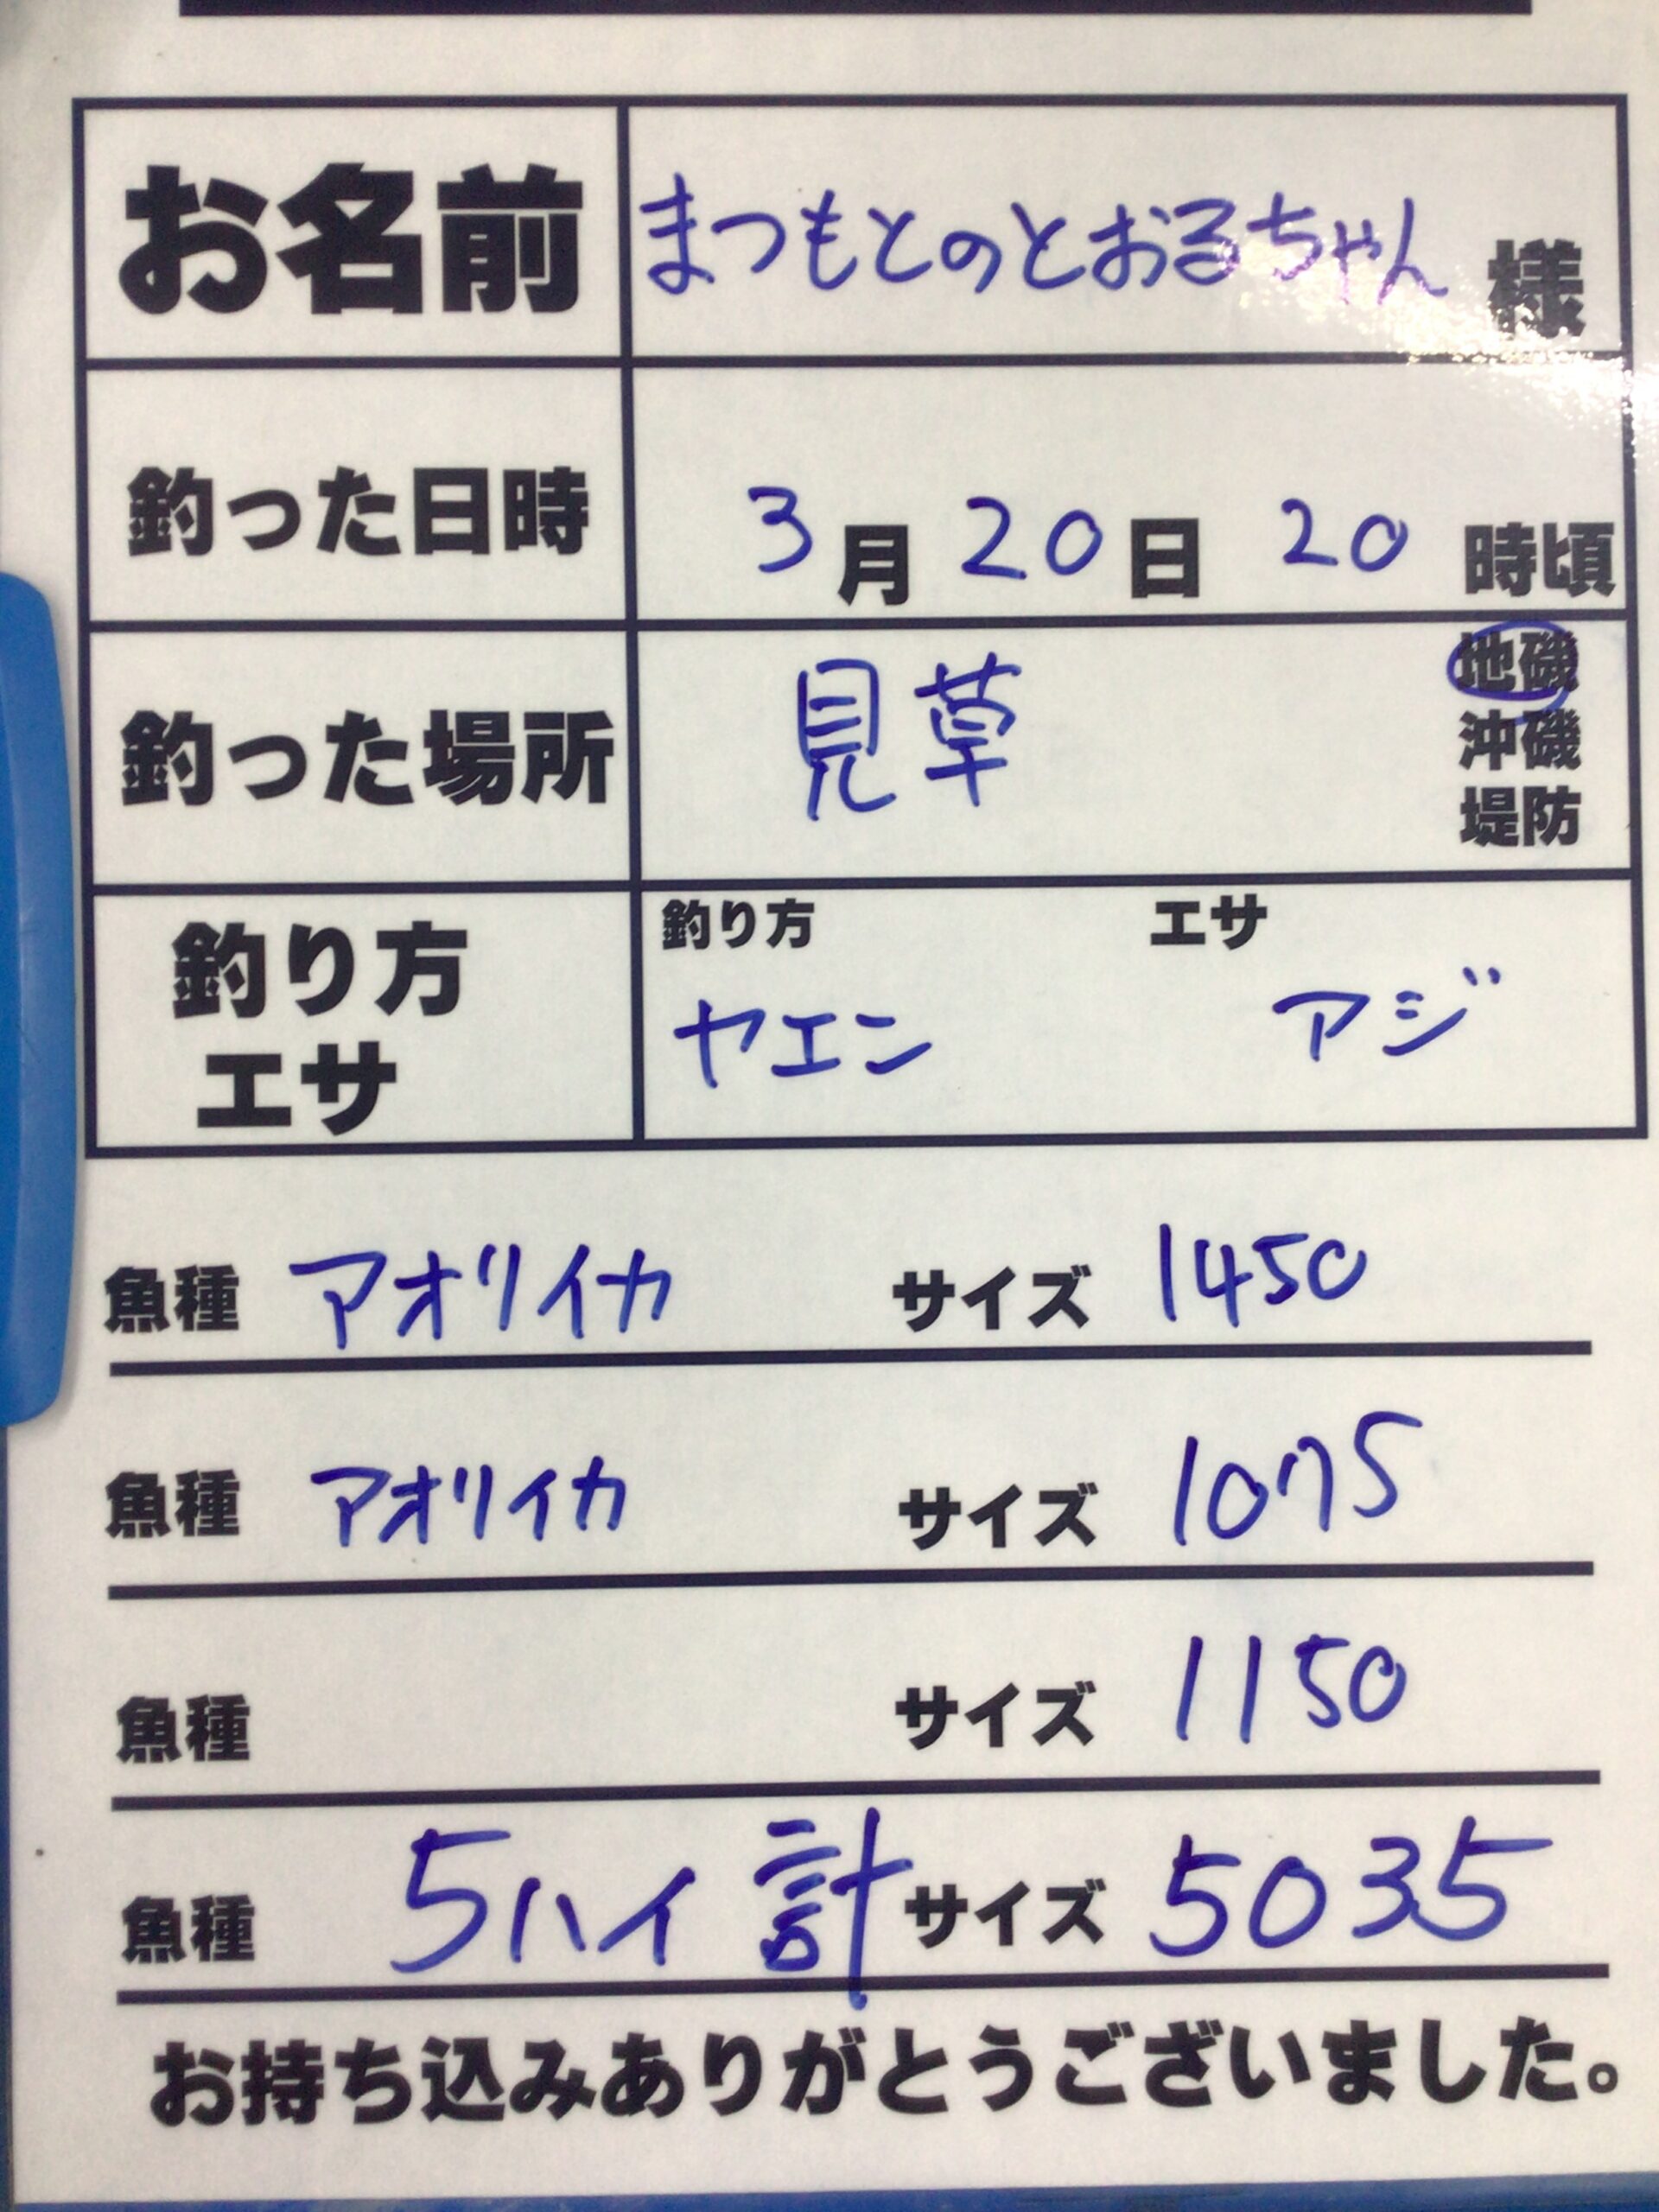 お名前 まつもとのとおるちゃん 様
釣った日時 3月20日 20時頃
釣った場所 見草 地磯
沖磯
堤防
釣り方 エサ
釣り方 ヤエン
エサ アジ
魚種 アオリイカ サイズ 1450
魚種 アオリイカ サイズ 1075
魚種 サイズ 1150
魚種 5ハイ 計 サイズ 5035
お持ち込みありがとうございました。